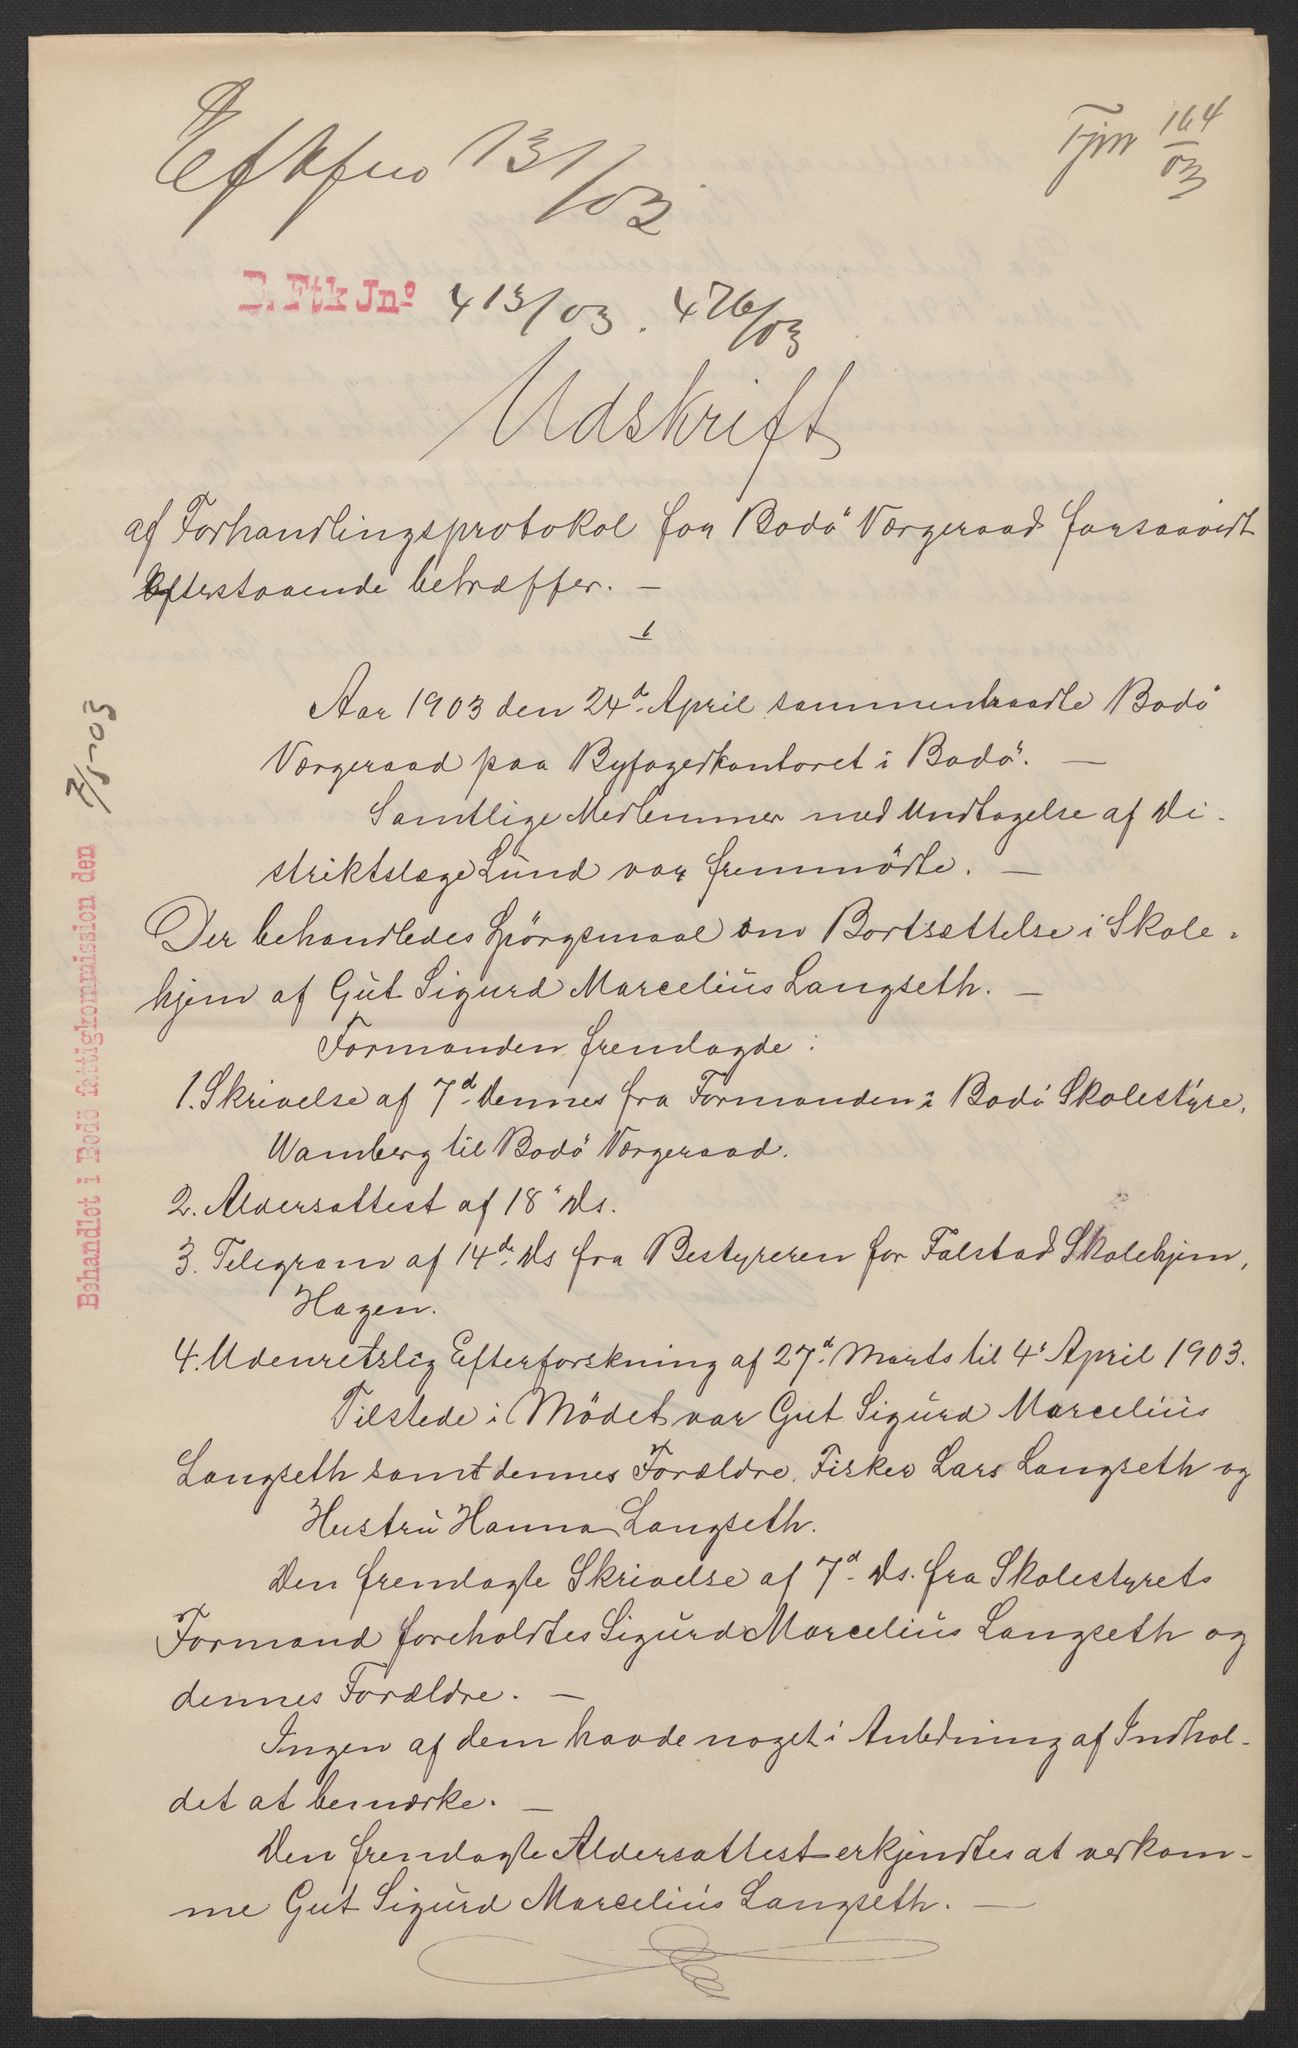 131/03
Tjm 164/03
B. Ftk Jnº 413/03. 476/03
Udskrift
af Forhandlingsprotokol for Bodö Værgeraad forsaavidt
Efterstaaende betræffer. —
Aar 1903 den 24d. April sammentraadte Bodö
Værgeraad paa Byfogedkontoret i Bodö. —
Samtlige Medlemmer med Undtagelse af Di-
striktslæge Lund var fremmödte. —
Der behandledes Spörgsmaal om Bortsættelse i Skole-
hjem af Gut Sigurd Marcelius Langseth. —
Formanden fremlagde:
1. Skrivelse af 7d. Dennes fra Formanden i Bodö Skolestyre,
Wamberg til Bodö Værgeraad.
2. Aldersattest af 18' Ds.
3. Telegram af 14de Ds fra Bestyreren for Falstad Skolehjem,
Hagen.
4. Udenretslig Efterforskning af 27d. Marts til 4' April 1903.
Tilstede i Mödet var Gut Sigurd Marcelius
Langseth samt dennes Forældre, Fisker Lars Langseth og
Hustru Hanna Langseth.
Den fremlagte Skrivelse af 7d. Ds. fra Skolestyrets
Formand foreholdtes Sigurd Marcelius Langseth og
dennes Forældre. —
Ingen af dem havde noget i Anledning af Indhol-
det at bemærke. —
Den fremlagte Aldersattest erkjendtes at vedkom-
me Gut Sigurd Marcelius Langseth. —
Behandlet i Bodö fattigkommission den 7/5-03